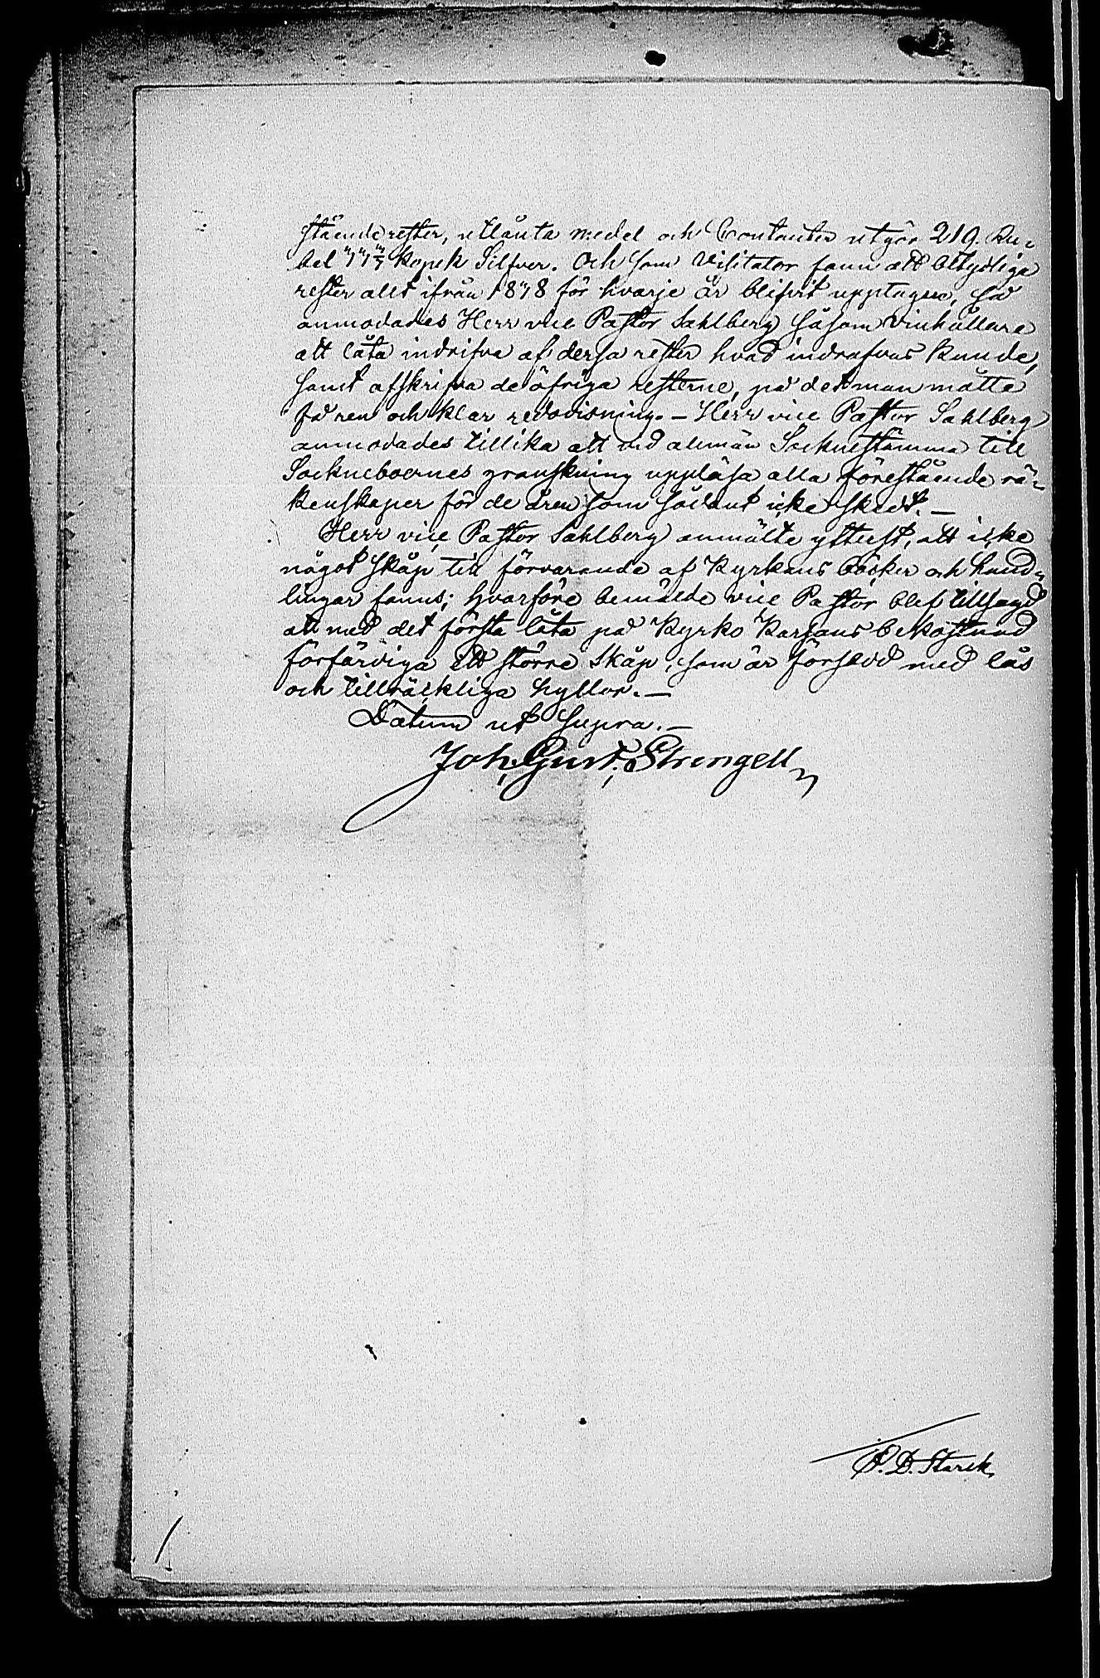 stående rester, utlånta medel och Contanter utgör 219. Ru-
bel kopek Silfver. Och som Visitator fann att betydliga
rester allt ifrån 1838 för hvarje år blifvit upptagne, så
anmodades Herr vice Pastor Sahlberg såsom vinhållare
att låta indrifva af dessa rester hvad indrifvas kunde,
samt afskrifva de öfriga resterne, på det man måtte
få ren och klar redovisning. – Herr vice Pastor Sahlberg
anmodades tillika att vid allmän Socknestämma till
Sockneboernes granskning uppläsa alla förestående rä-
kenskaper för de åren som sådant icke skedt. –
Herr vice Pastor Sahlberg anmälte ytterst, att icke
något skåp till förvarande af Kyrkans böcker och hand-
lingar fanns; hvarföre bemälde vice Pastor blef tillsagd
att med det första låta på Kyrko Kassans bekostnad
förfärdiga ett större skåp, som är försedd med lås
och tillräckliga hyllor. –
Datum ut supra. –
Joh. Gust. Strengell
P. D. Starck